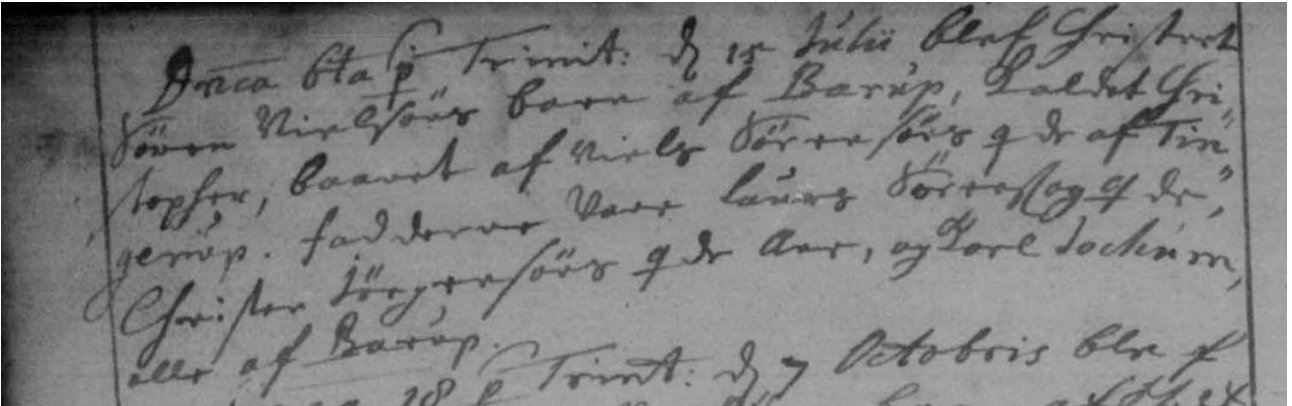 Dnica 6ta p Trinit: d 15 Julii blef Christnet
Sören Nielsöns barn af Barup, Kaldet Chri-
stopher, baaret af Niels Sörensöns q de af Tin-
gerup. fadderne vare Laurs Sörens og q de,
Christen Jörgensöns q de Ane, og Karl Jochum,
alle af Barup.
28 p Trinit: d 7 Octobris blef